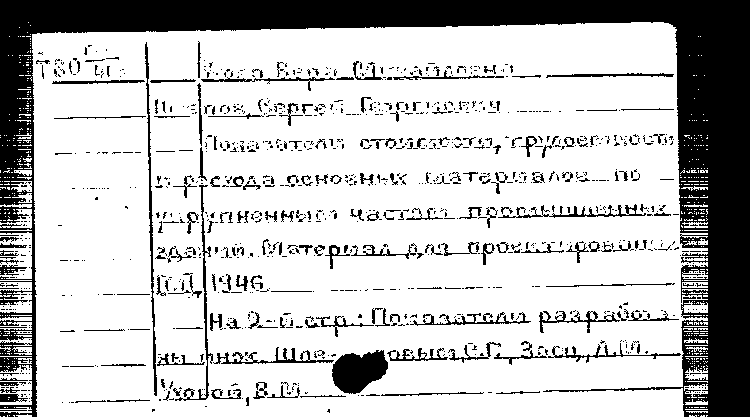 Т80
Ухова, Вера Михайловна
Сергей Георгиевич
Показатели стоимости, трудоемкости
и расхода основных материалов по
укрупненным частям промышленных
зданий. Материал для проектирования
1946
На 2-й стр.: Показатели разработа-
ны инж. С.Г., А.М.,
Уховой, В.М.